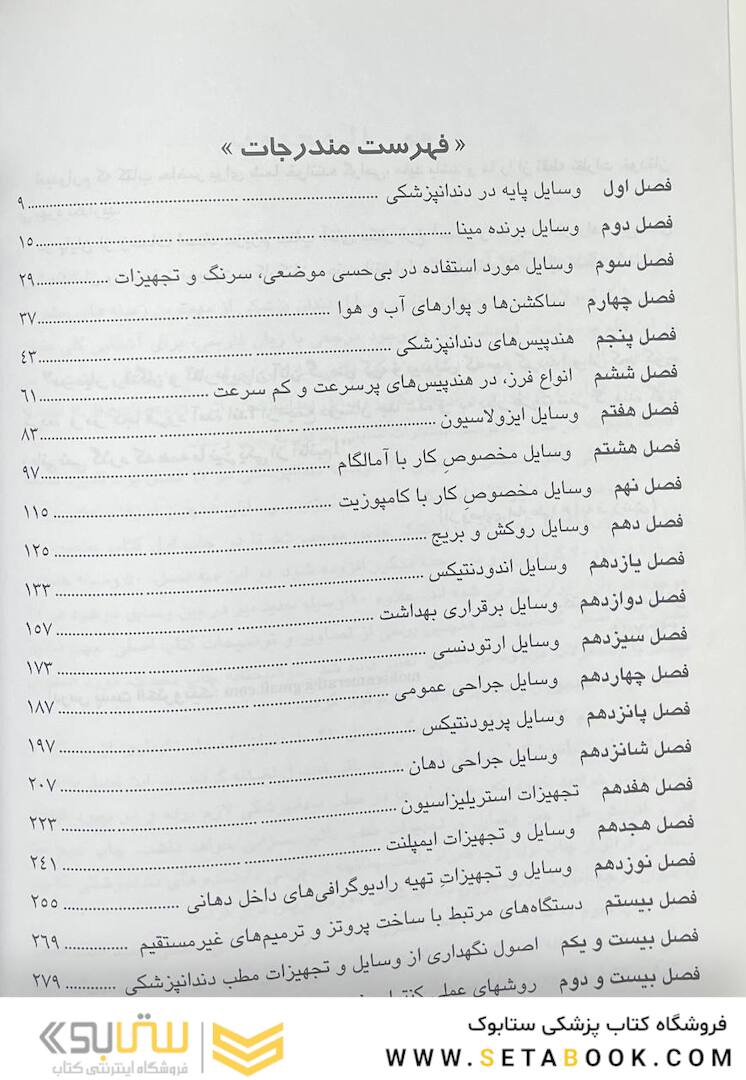 « فهرست مندرجات »
فصل اول وسایل پایه در دندانپزشکی ........ ۹
فصل دوم وسایل برنده مینا ........ ۱۵
فصل سوم وسایل مورد استفاده در بی‌حسی موضعی، سرنگ و تجهیزات ........ ۲۹
فصل چهارم ساکشن‌ها و پوارهای آب و هوا ........ ۳۷
فصل پنجم هندپیس‌های دندانپزشکی ........ ۴۳
فصل ششم انواع فرز، در هندپیس‌های پرسرعت و کم سرعت ........ ۶۱
فصل هفتم وسایل ایزولاسیون ........ ۸۳
فصل هشتم وسایل مخصوصِ کار با آمالگام ........ ۹۷
فصل نهم وسایل مخصوصِ کار با کامپوزیت ........ ۱۱۵
فصل دهم وسایل روکش و بریج ........ ۱۲۵
فصل یازدهم وسایل اندودنتیکس ........ ۱۳۳
فصل دوازدهم وسایل برقراری بهداشت ........ ۱۵۷
فصل سیزدهم وسایل ارتودنسی ........ ۱۷۳
فصل چهاردهم وسایل جراحی عمومی ........ ۱۸۷
فصل پانزدهم وسایل پریودنتیکس ........ ۱۹۷
فصل شانزدهم وسایل جراحی دهان ........ ۲۰۷
فصل هفدهم تجهیزات استریلیزاسیون ........ ۲۲۳
فصل هجدهم وسایل و تجهیزات ایمپلنت ........ ۲۴۱
فصل نوزدهم وسایل و تجهیزاتِ تهیه رادیوگرافی‌های داخل دهانی ........ ۲۵۵
فصل بیستم دستگاه‌های مرتبط با ساخت پروتز و ترمیم‌های غیرمستقیم ........ ۲۶۹
فصل بیست و یکم اصول نگهداری از وسایل و تجهیزات مطب دندانپزشکی ........ ۲۷۹
فصل بیست و دوم روشهای عملی کنترل
فروشگاه کتاب پزشکی ستابوک
WWW.SETABOOK.COM
ستابوک
فروشگاه اینترنتی کتاب